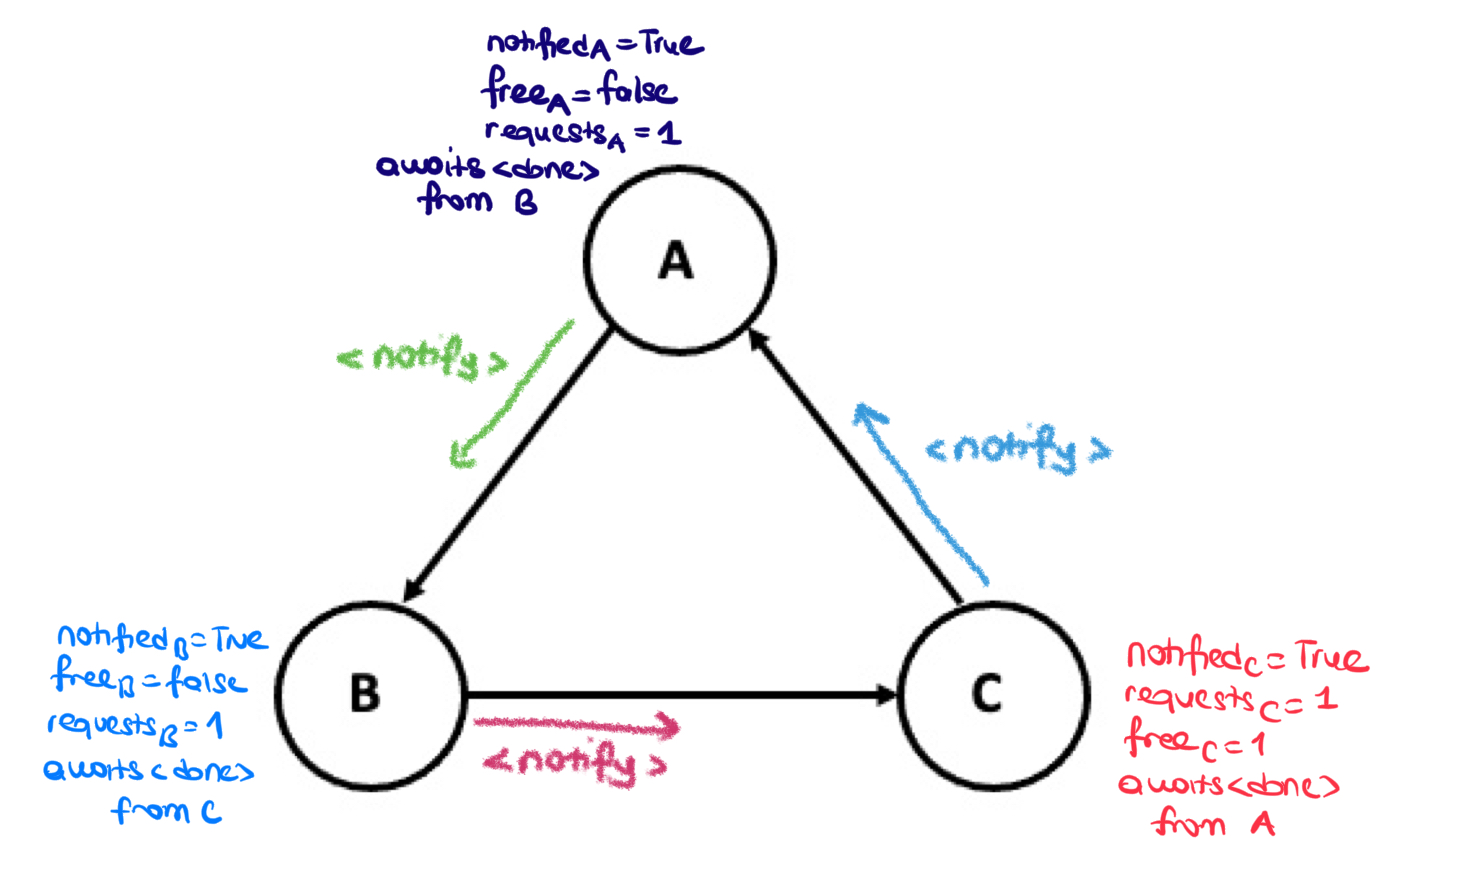 notified A = True
free A = false
requests A = 1
awaits <done>
from B
A
<notify>
<notify>
notified B = True
free B = false
requests B = 1
awaits <done>
from C
B
<notify>
C
notified C = True
requests C = 1
free C = 1
awaits <done>
from A